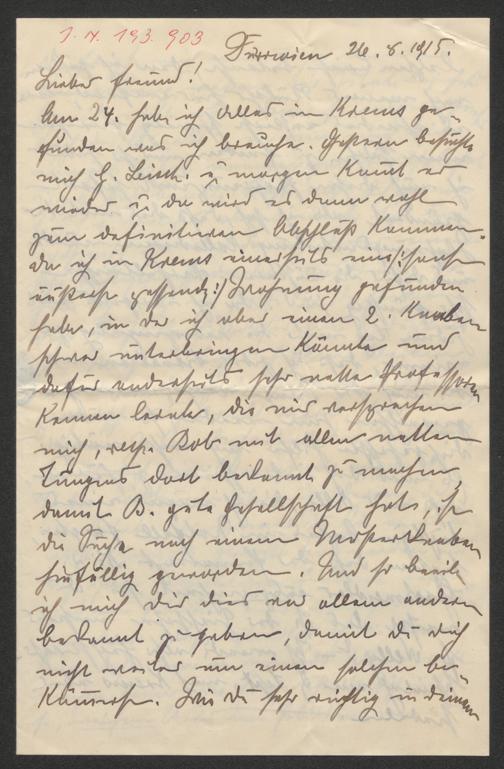 I. N. 193.903
Dürrwien 26. 8. 1915.
Lieber Freund!
Am 24. habe ich alles in Krems ge-
funden was ich brauche. Gestern besuchte
mich H. u. morgen kommt er
wieder u. da wird es dann wohl
zum definitiven Abschluß kommen.
Da ich in Krems einerseits eine /: sonst
äußerst passende :/ Wohnung gefunden
habe, in der ich aber einen 2. Knaben
schwer unterbringen könnte und
dafür anderseits sehr nette Professoren
kennen lernte, die mir versprachen
mich, resp. Bob mit allen netten
Jungens dort bekannt zu machen,
damit B. gute Gesellschaft hat, ist
die Suche nach einem Musterknaben
hinfällig geworden. Und so beeile
ich mich dir dies vor allem andern
bekannt zu geben, damit du dich
nicht weiter um einen solchen be-
kümmerst. Wie du sehr richtig in deinem